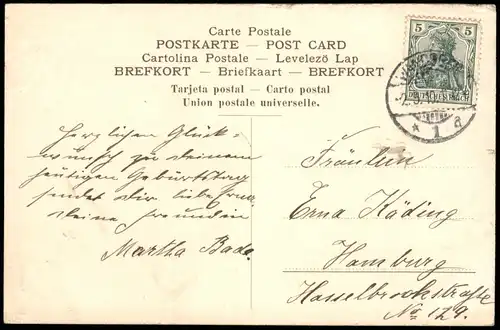 Carte Postale
POSTKARTE — POST CARD
Cartolina Postale — Levelezö Lap
BREFKORT — Briefkaart — BREFKORT
Tarjeta postal — Carto postal
Union postale universelle.
5 5
DEUTSCHES REICH
* 1 a
Herzlichen Glück-
wunsch zu deinem
heutigen Geburtstag
sendet dir liebe Erna,
deine Freundin
Martha Bade.
Fräulein
Erna Käding
Hamburg
Hasselbrockstraße
No 129.